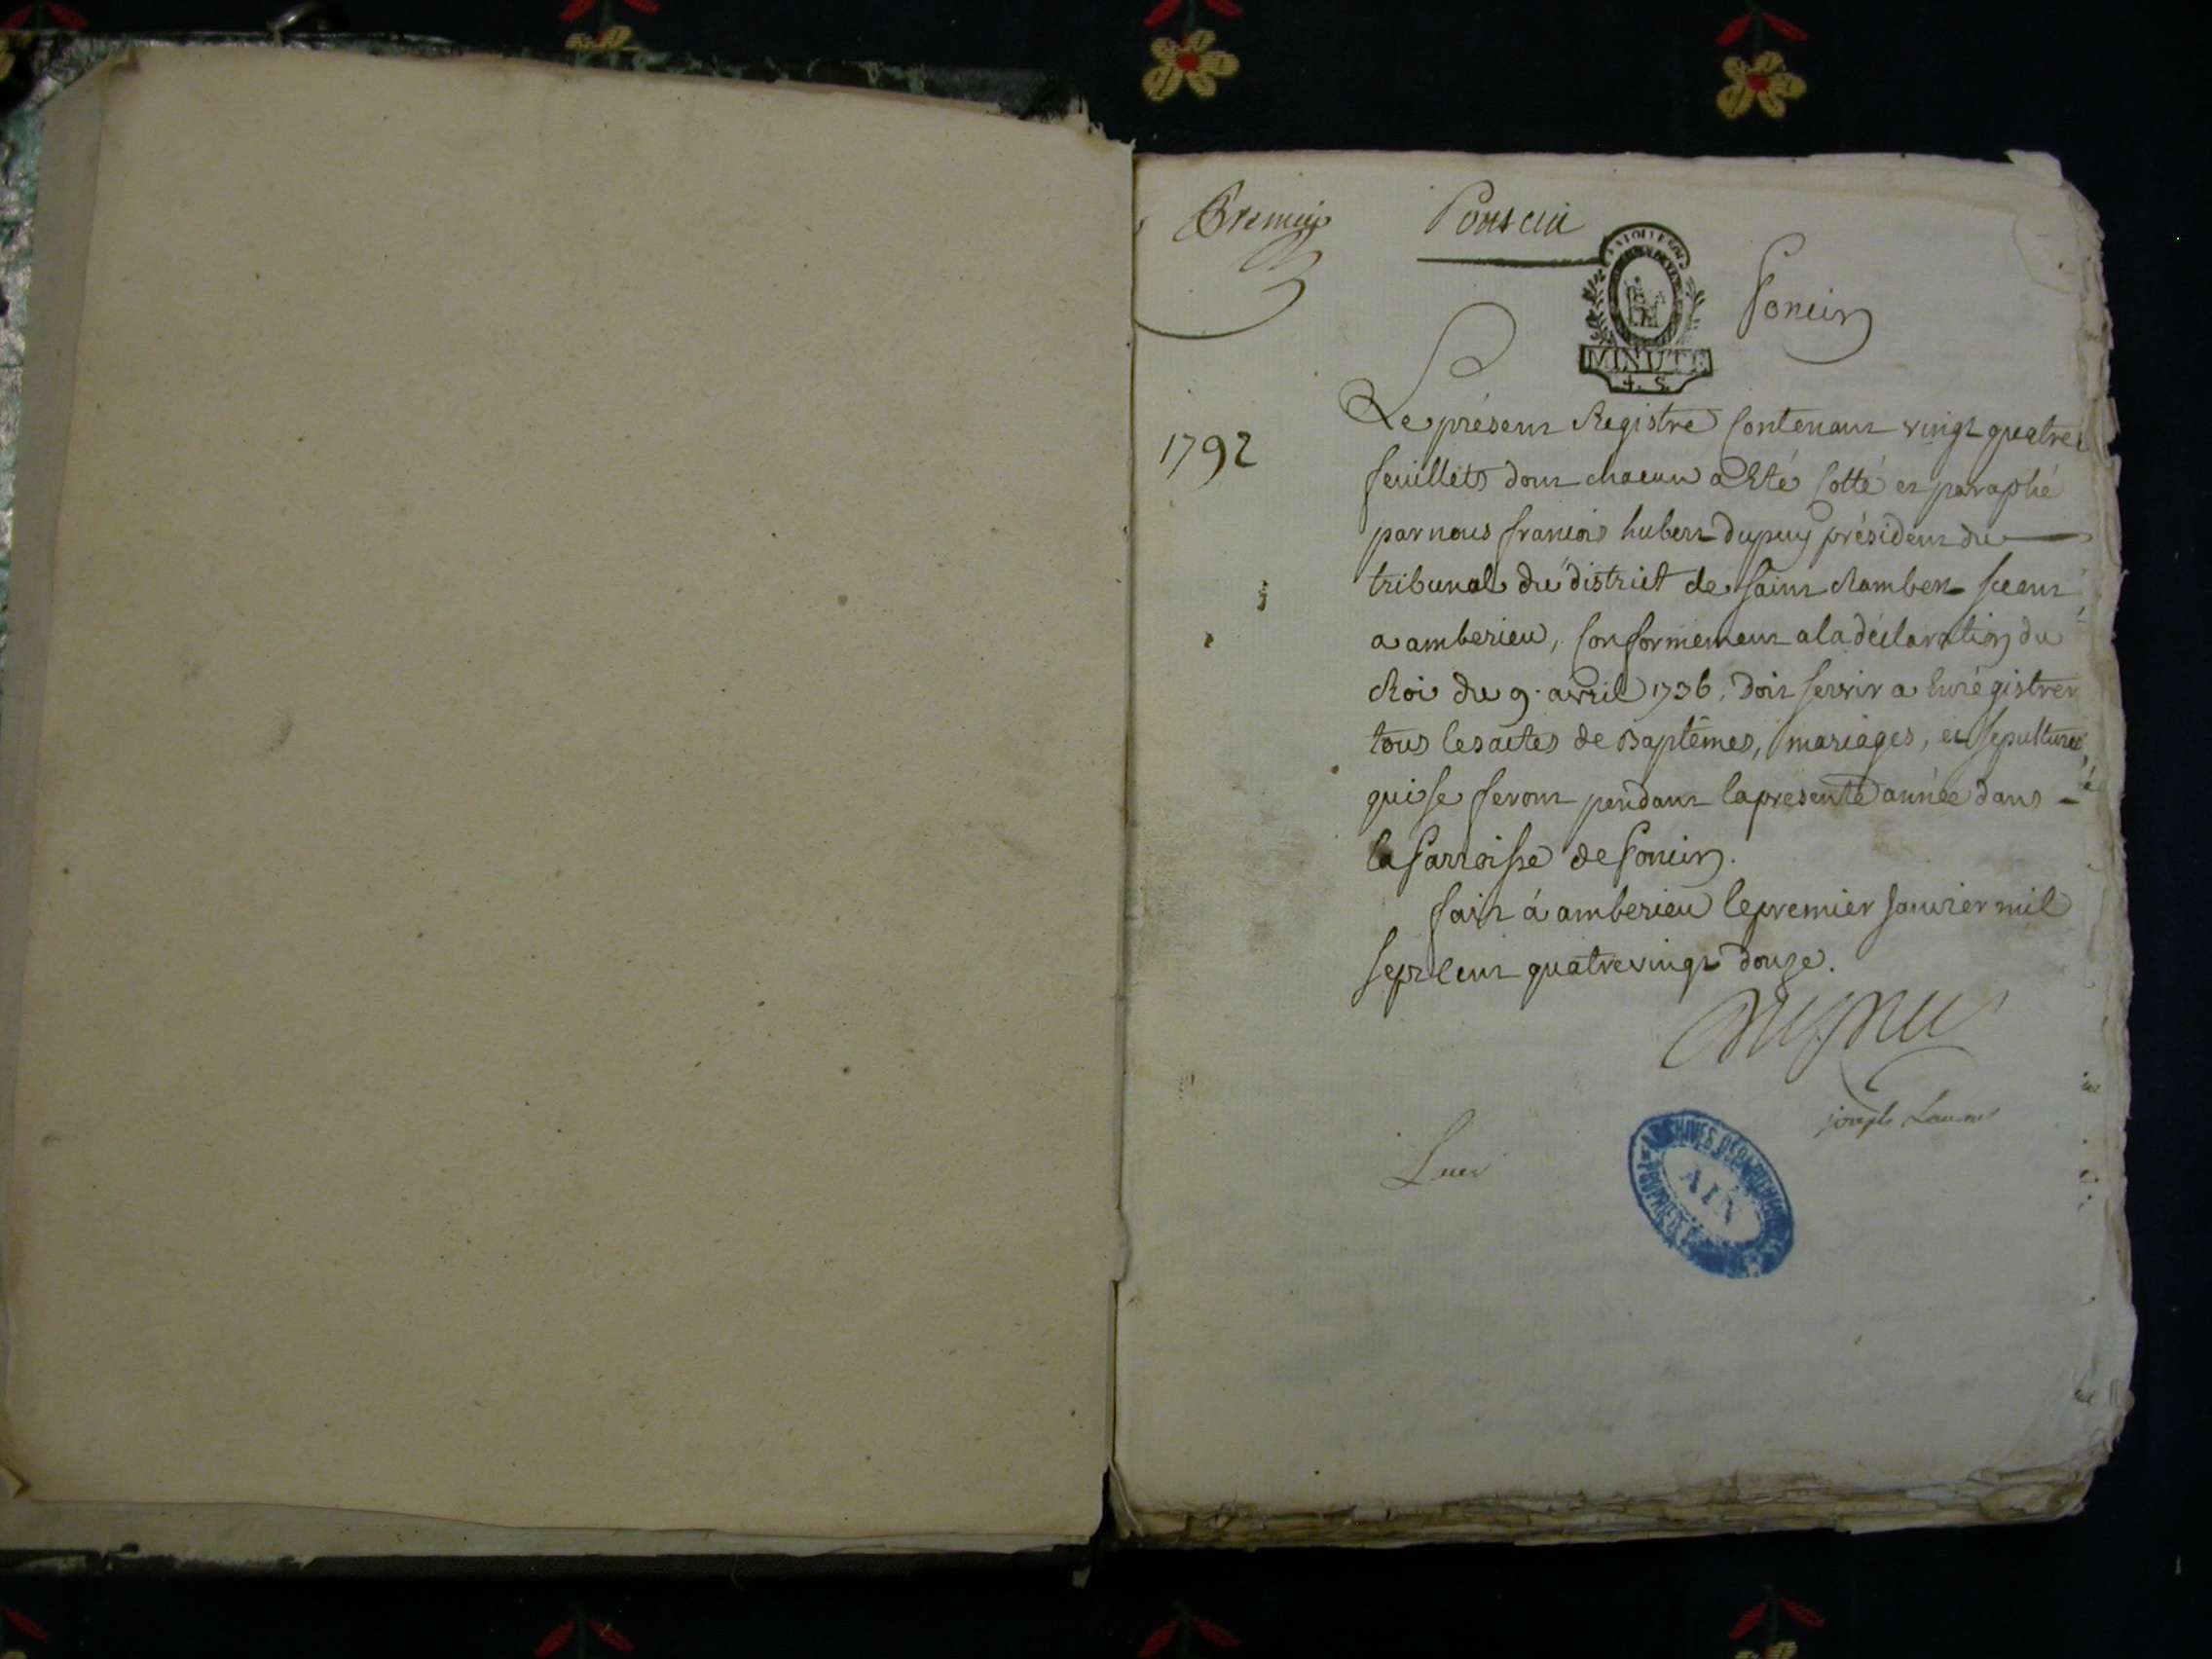 Premier
Poncin
LA LOI LE ROI
MINUTE
4. S.
Poncin
1792
Le présent Registre Contenant vingt quatre
feuillets dont chacun a Eté Cotté et paraphé
par nous francois hubert Dupuy président du
tribunal du district de Saint Rambert sceant
a amberieu, Conformement a la déclaration du
Roi du 9. avril 1736. doit servir a Enrégistrer
tous les actes de Baptêmes, mariages, et sepultures
qui se feront pendant la presente année dans
la Parroisse de Poncin.
fait á amberieu le premier Janvier mil
sept Cent quatre vingt douze.
Dupuy
joseph
ARCHIVES DEPARTEMENTALES
AIN
PROPRIETE